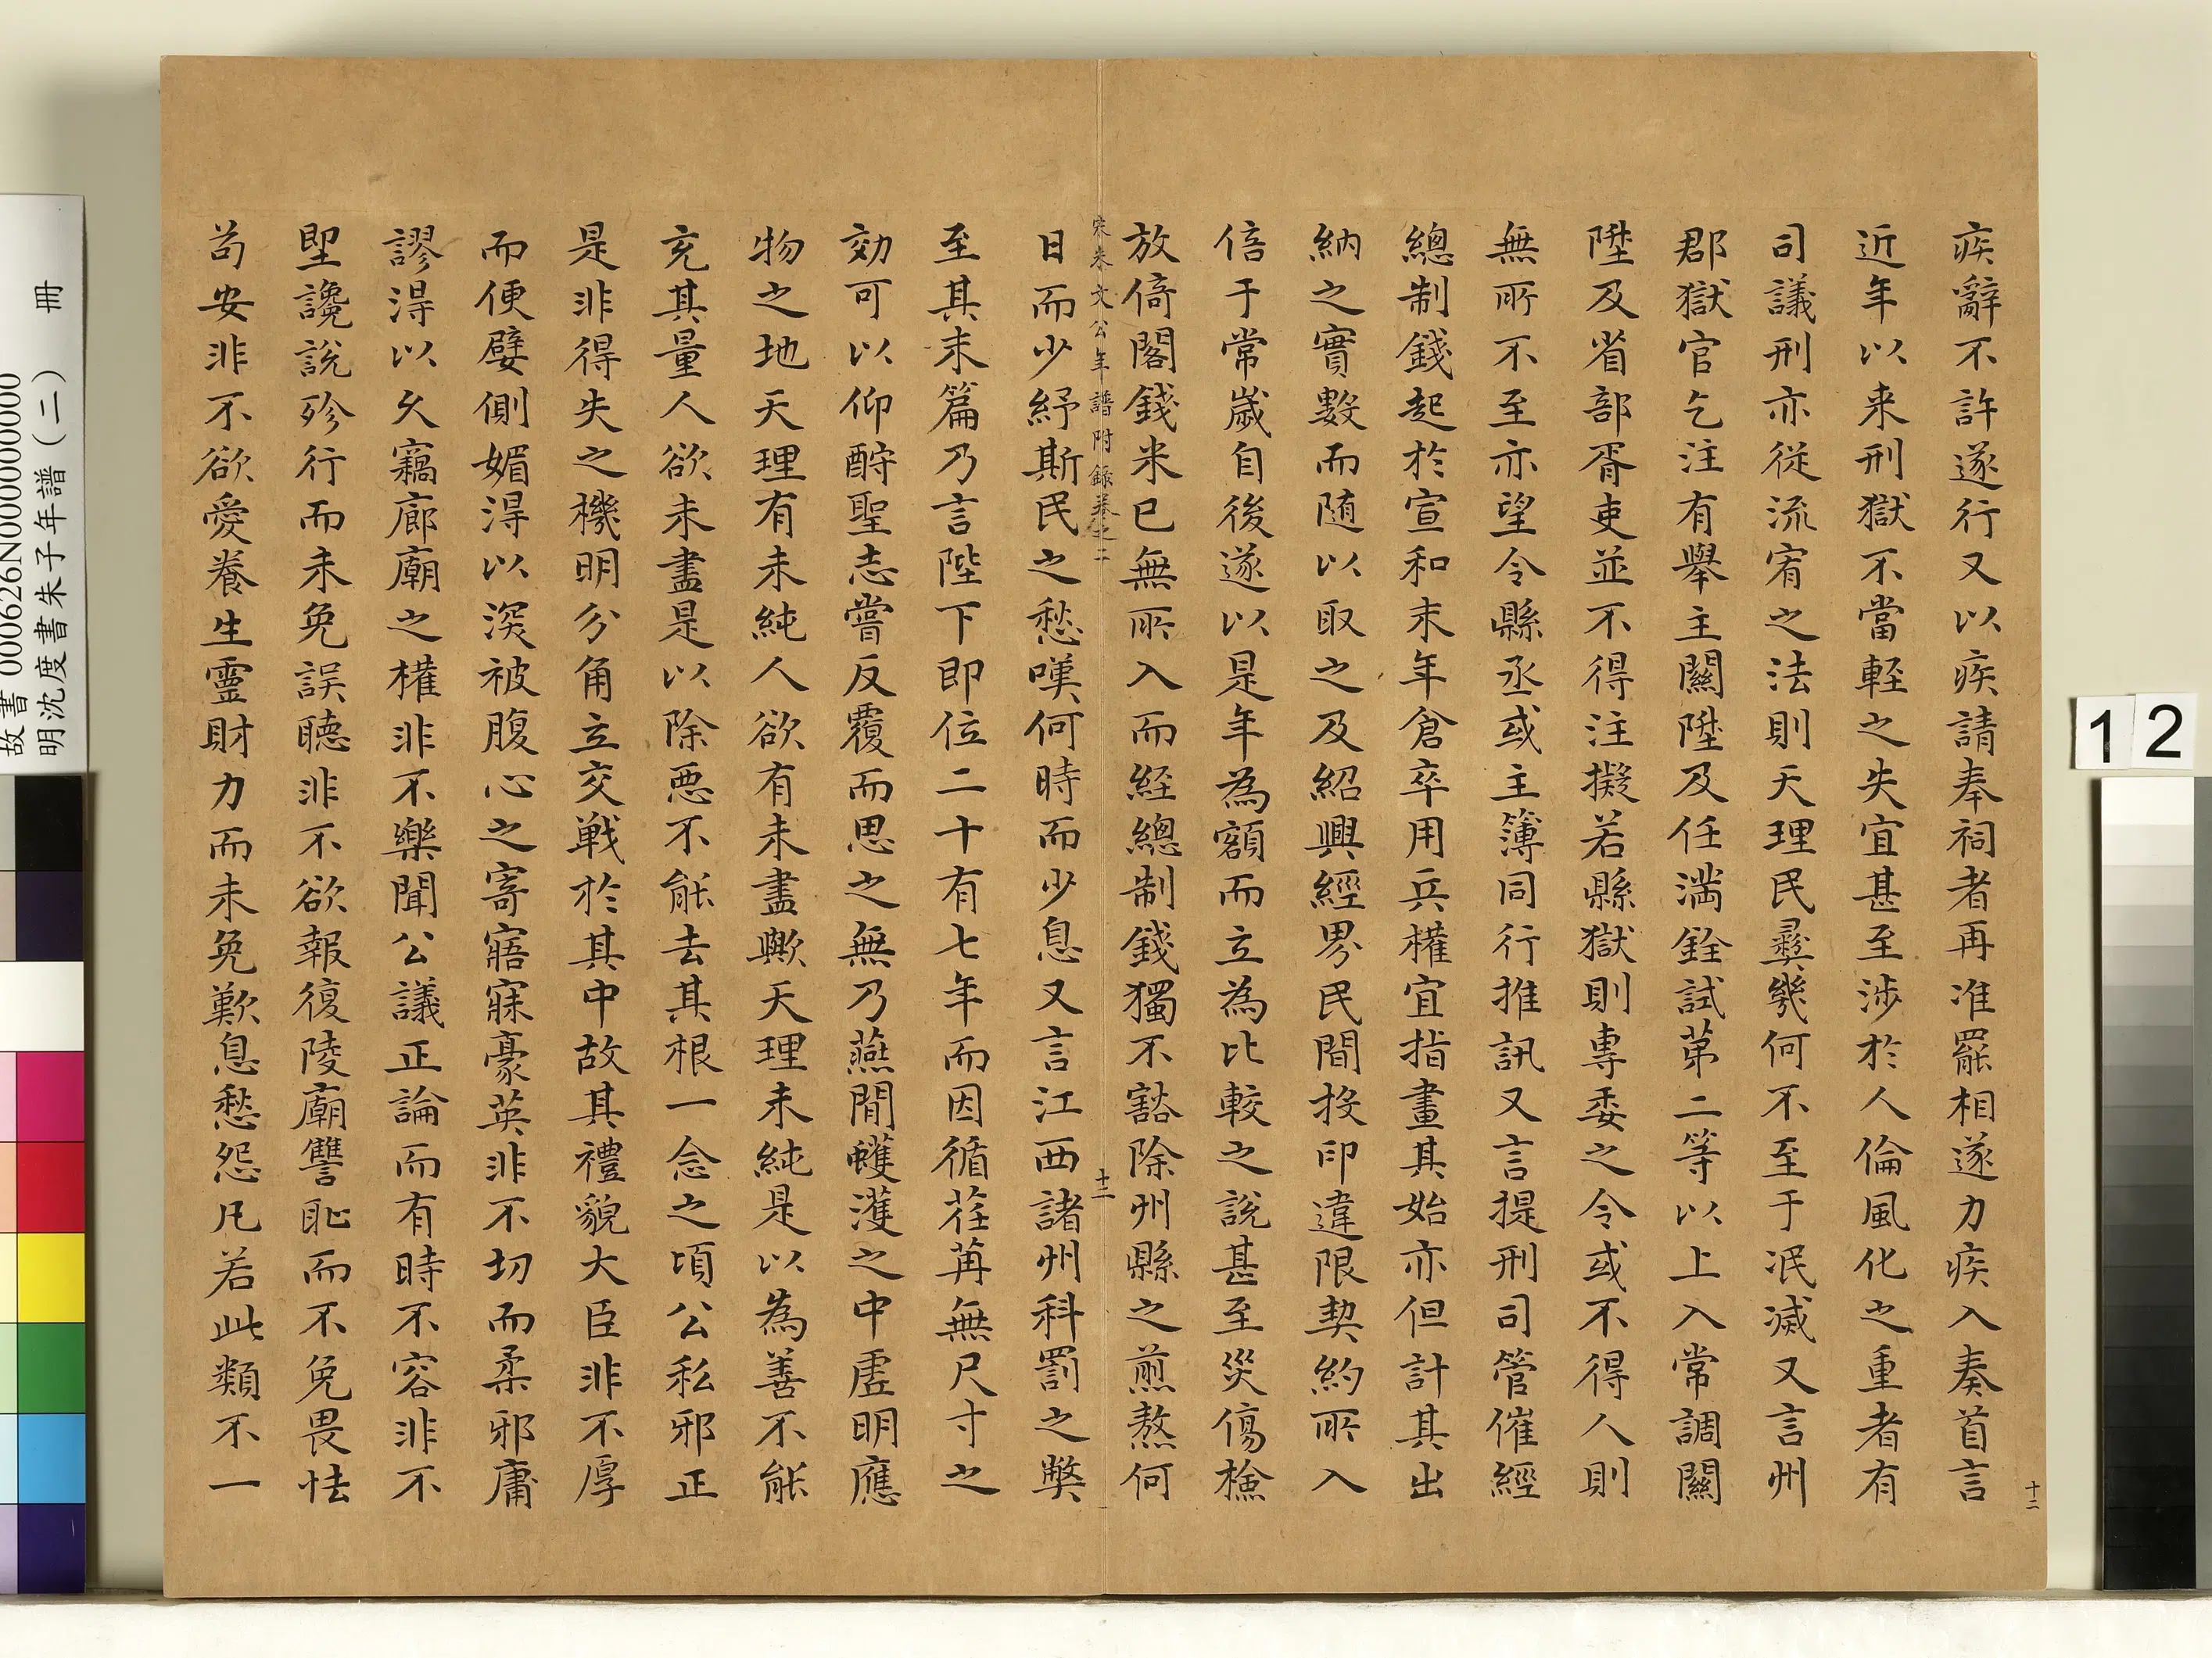 疾辭不許遂行又以疾請奉祠者再准罷相遂力疾入奏首言
近年以来刑獄不當輕之失宜甚至涉於人倫風化之重者有
司議刑亦從流宥之法則天理民彝幾何不至于泯滅又言州
郡獄官乞注有舉主關陞及任満銓試苐二等以上入常調關
陞及省部胥吏並不得注擬若縣獄則專委之令或不得人則
無所不至亦望令縣丞或主簿同行推訊又言提刑司管催經
總制錢起於宣和末年倉卒用兵權宜指畫其始亦但計其出
納之實數而随以取之及紹興經界民間投印違限契約所入
倍于常歲自後遂以是年為額而立為比較之說甚至災傷檢
放倚閣錢米已無所入而経總制錢獨不豁除州縣之煎熬何
日而少紓斯民之愁嘆何時而少息又言江西諸州科罰之弊
至其末篇乃言陛下即位二十有七年而因循荏苒無尺寸之
効可以仰酧聖志嘗反覆而思之無乃燕閒蠖濩之中虛明應
物之地天理有未純人欲有未盡歟天理未純是以為善不能
充其量人欲未盡是以除惡不能去其根一念之頃公私邪正
是非得失之機明分角立交戦於其中故其禮貌大臣非不厚
而便嬖側媚得以深被腹心之寄寤寐豪英非不切而柔邪庸
謬得以久竊廊廟之權非不樂聞公議正論而有時不容非不
堲讒說殄行而未免誤聽非不欲報復陵廟讐恥而不免畏怯
苟安非不欲愛養生靈財力而未免歎息愁怨凡若此類不一
宋朱文公年譜附錄卷之二
十二
十二
12
故書000626N000000000
明沈度書朱子年譜(二) 冊